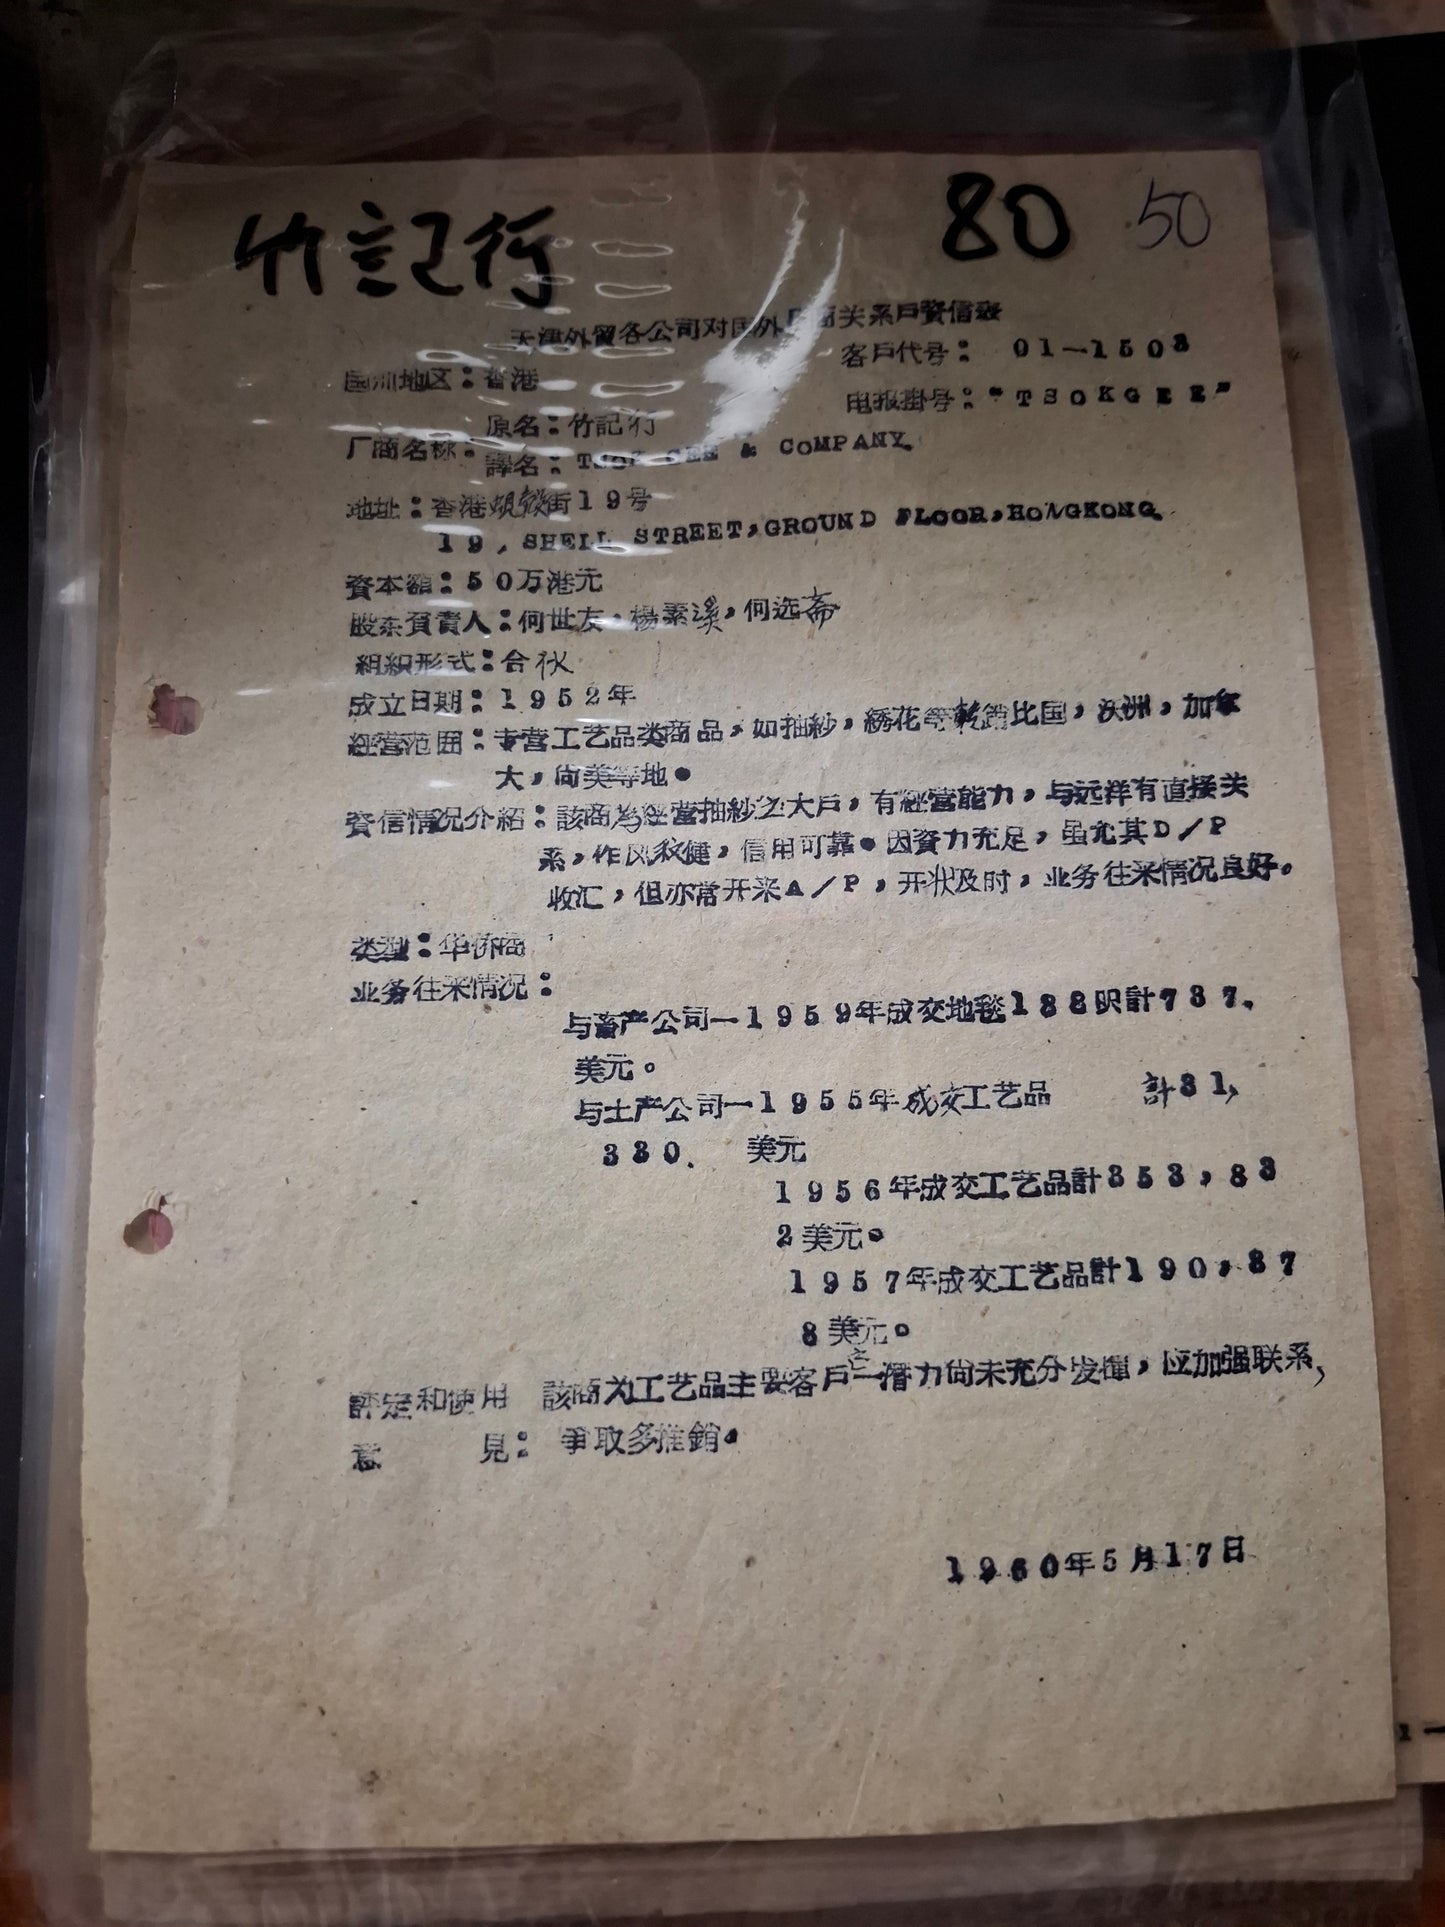 竹記行
80 50
天津外貿各公司对国外厂商关系戶資信表
国別地区：香港 客戶代号：01—1503
电报掛号："TSOKGEE"
厂商名称：原名：竹記行
譯名：TSOK GEE & COMPANY.
地址：香港蜆殼街19号
19, SHELL STREET,GROUND FLOOR,HONGKONG.
資本額：50万港元
股东負責人：何世友，楊素溪，何选斋
組織形式：合伙
成立日期：1952年
經营范囲：专营工艺品类商品，如抽紗，綉花等転銷比国，次洲，加拿
大，尙美等地。
資信情况介紹：該商为經营抽紗之大戶，有經营能力，与远洋有直接关
系，作风稳健，信用可靠。因資力充足，虽允其D／P
收汇，但亦常开来A／P，开状及时，业务往来情况良好。
类型：华侨商
业务往来情况：
与畜产公司—1959年成交地毯188呎計737.
美元。
与土产公司—1955年成交工艺品 計31,
330. 美元
1956年成交工艺品計353，83
2美元。
1957年成交工艺品計190，87
8美元。
評定和使用 該商为工艺品主要客戶之一潛力尙未充分发揮，应加强联系，
意 見： 爭取多推銷。
1960年5月17日
1—